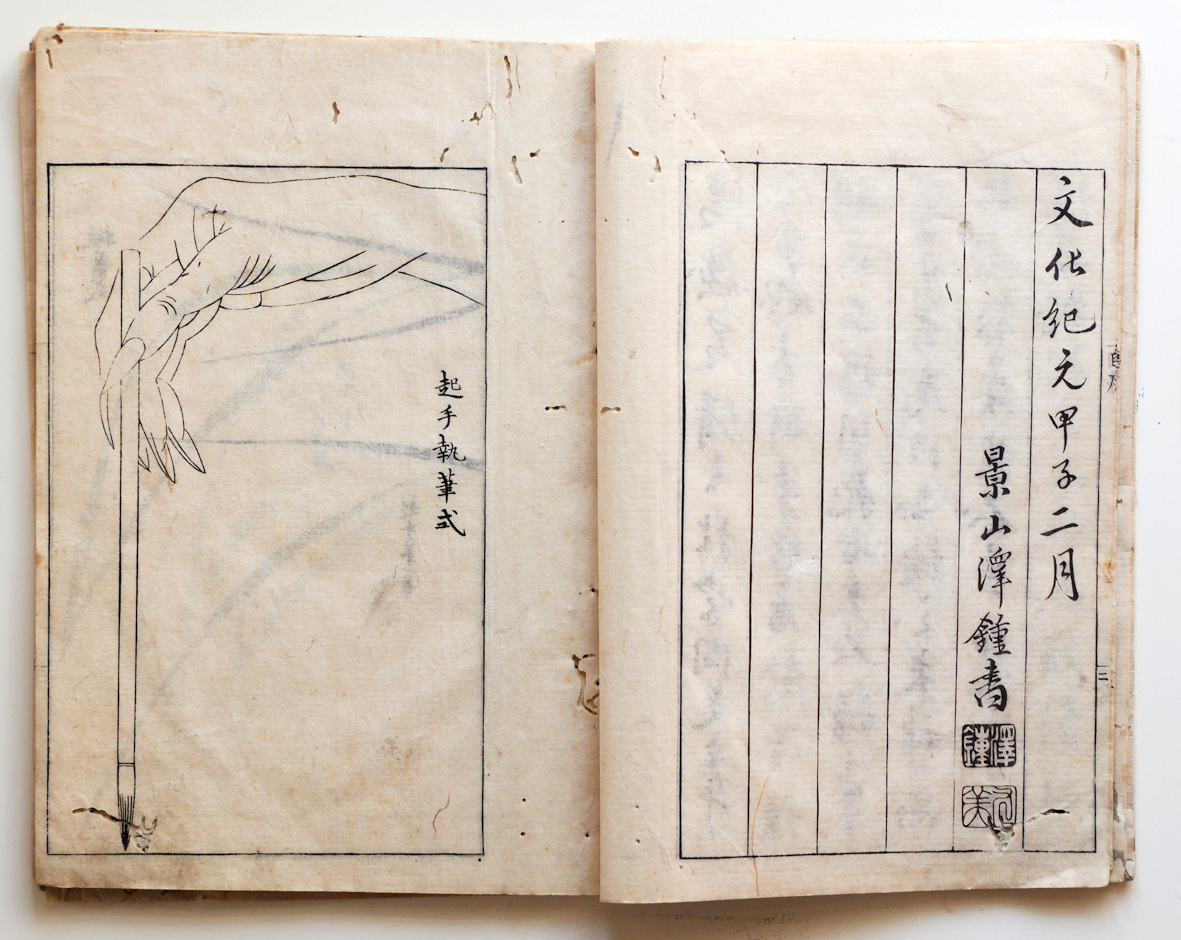 文化紀元甲子二月
景山澤鍾書
澤鍾
起手執筆式